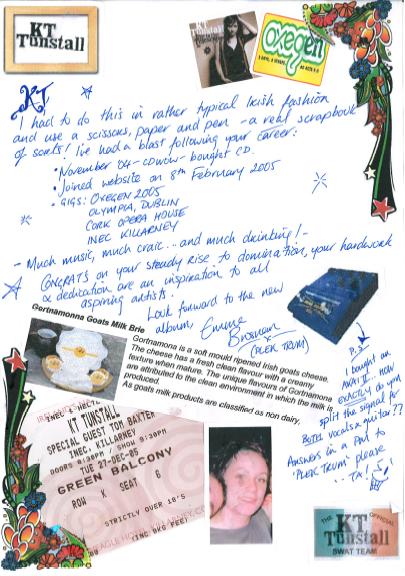 KT
Tunstall
KT
Tunstall
OXEGEN
KT
I had to do this in rather typical Irish fashion
and use a scissors, paper and pen - a real scrapbook
of sorts! I've had a blast following your career:
• November '04 - CDWOW - bought CD
• Joined website on 8th February 2005
• GIGS: OXEGEN 2005
OLYMPIA, DUBLIN
CORK OPERA HOUSE
INEC KILLARNEY
- Much music, much craic... and much drinking! -
CONGRATS on your steady rise to domination, your hardwork
& dedication are an inspiration to all
aspiring artists!
Look forward to the new
album, Emma
Brosnan
(PLEK TRUM)
Gortnamonna Goats Milk Brie
Gortnamonna is a soft mould ripened Irish goats cheese.
The cheese has a fresh clean flavour with a creamy
texture when mature. The unique flavours of Gortnamona
are attributed to the clean environment in which the milk is
produced.
As goats milk products are classified as non dairy,
P.S.
I bought an
AKAI.. now
EXACTLY do you
split the signal for
BOTH vocals & guitar??
Answers in a PM to
'PLEK TRUM' please
...TA!
INEC & HECT
KT TUNSTALL
SPECIAL GUEST TOM BAXTER
INEC, KILLARNEY
DOORS 6:30PM / SHOW 8:30PM
TUE 27-DEC-05
GREEN BALCONY
ROW K SEAT 6
STRICTLY OVER 18'S
(INC BKG FEE)
THE OFFICIAL
KT
Tunstall
SWAT TEAM